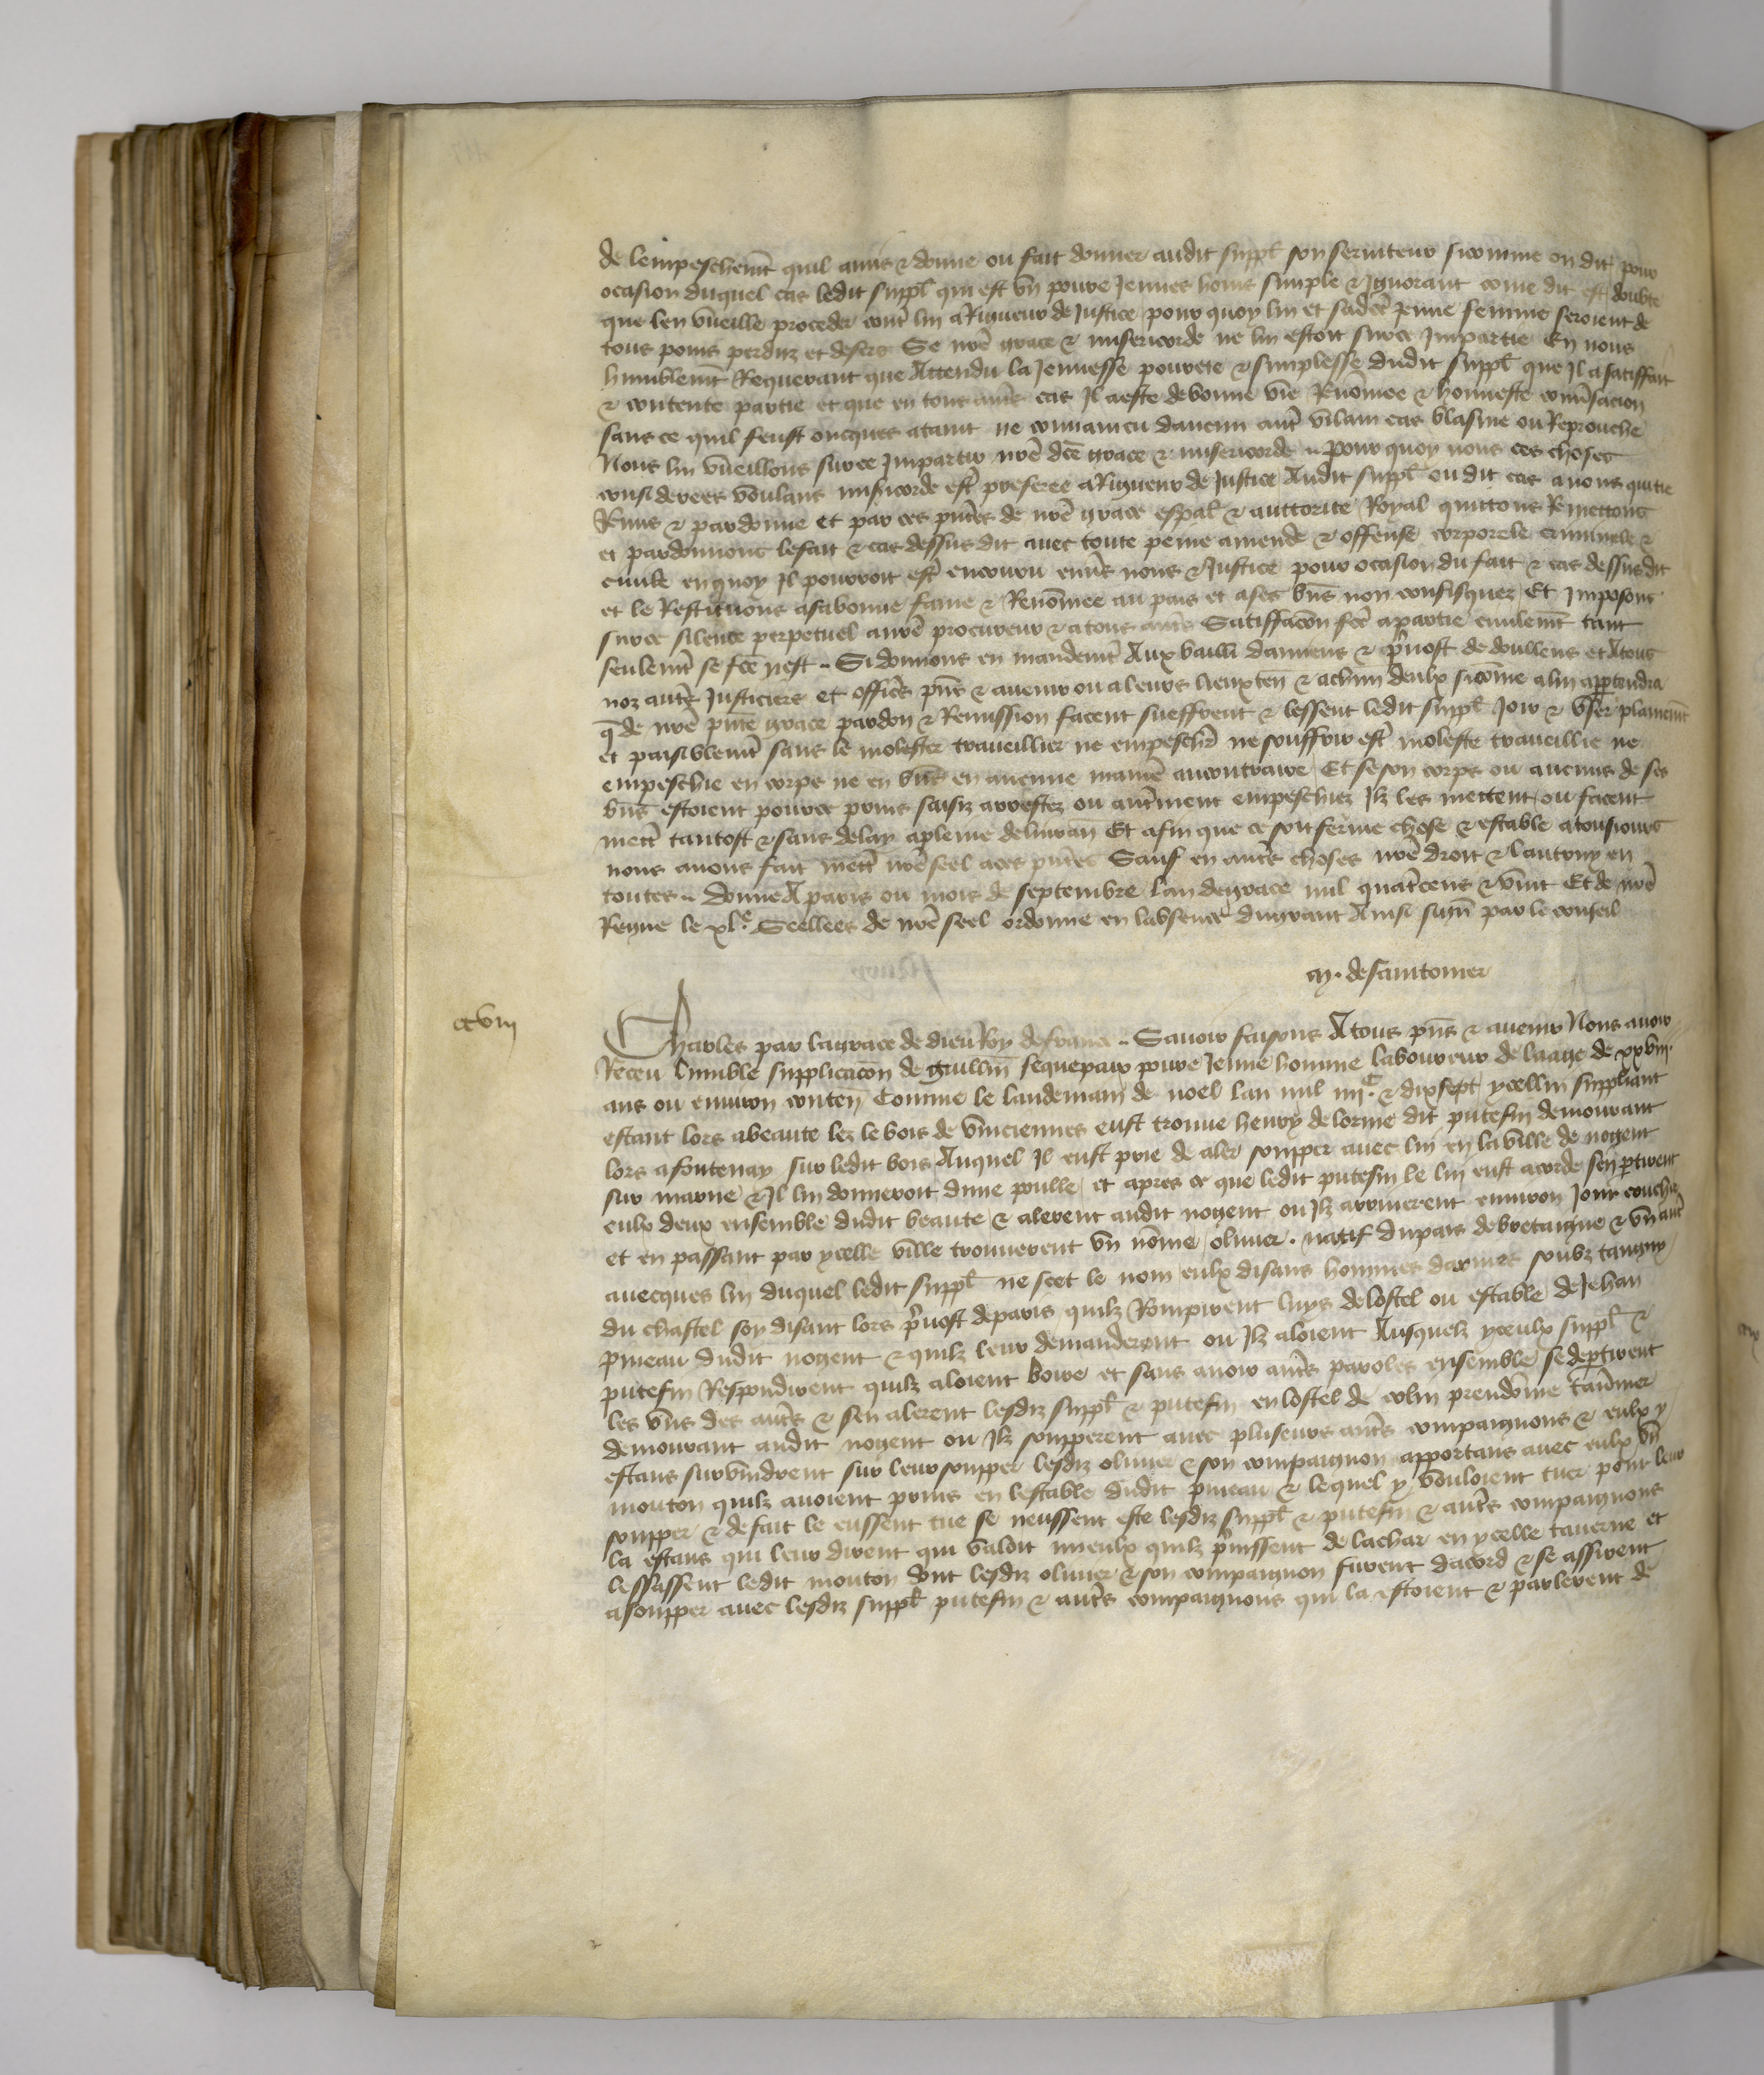 de lempeschemt quil a mis & donne ou fait donner audit suppl son seruiteur sicomme on dit pour
ocasion duquel cas ledit suppl qui est vn poure jeunes homs simple & Ignorant come dit est doubte
que len vueille proceder contr lui a Rigueur de Justice pour quoy lui et sadce jeune femme seroient de
tous poins perduz et desers Se nre grace & misericorde ne lui estoit sur ce Impartie En nous
humblemt Requerant que Attendu la Jeunesse pourete & simplesse dudit suppl que Il a satiffait
& contente partie et que en tout autrs cas Il a este de bonne vie Renomee & honneste conusacion
sans ce quil feust oncques ataint ne conuaincu daucun autr vilain cas blasme ou Reprouche
Nous lui vueillons sur ce Impartir nre dce grace & misericorde Pour quoy nous ces choses
considerees voulans misicorde estr preferee a Rigueur de Justice Audit suppl ou dit cas auons quitte
Remis & pardonne et par ces pntes de nre grace espal & auttorite Royal quittons Remettons
et pardonnons le fait & cas dessus dit auec toute peine amende & offense corporele criminele &
ciuile en quoy Il pourroit estr encouru enuers nous & Justice pour ocasion du fait & cas dessus dit
et le Restituons a sa bonne fame & Renomee au pais et a ses bns non confisquez Et Imposons
sur ce silence perpetuel a nre procureur & a tous autrs Satiffacon fce a partie ciuilemt tant
seulemt se fce nest Si donnons en mandemt Aux bailli damiens & preuost de doullens et A tous
noz autrs Justiciers et officrs pns & auenir ou a leurs lieuxten & a chun deulx sicome a lui appertendra
q de nre pnte grace pardon & Remission facent sueffrent & lessent ledit suppl Joir & vser plainemt
et paisiblemt sans le molester traueillier ne empeschr ne souffrir estr moleste traueillie ne
empeschie en corps ne en bns en aucune manie au contraire Et se son corps ou aucuns de ses
bns estoient pour ce prins saisiz arrestez ou autrment empeschiez Ilz les mettent ou facent
mettr tantost & sans delay a pleine deliuran Et afin que ce soit ferme chose & estable a tousiours
nous auons fait mettr nre seel a ces pntes Sauf en autrs choses nre droit & lautruy en
toutes donne A paris ou mois de septembre lan de grace mil quatrcens & vint Et de nre
Regne le xle Seellees de nre seel ordonne en labsence du grant Ainsi sign par le conseil
M. de saintomer
ccviij
Charles par la grace de dieu Roy de france Sauoir faisons A tous pns & auenir Nous auoir
Receu lumble supplicacon de guillm sequepair poure Jeune homme laboureur de laage de xxviij
ans ou enuiron conten Comme le landemain de noel lan mil iiijc & dixsept ycellui suppliant
estant lors a beaute lez le bois de vinciennes eust trouue henry de lorme dit putefin demourant
lors a fontenay sur ledit bois Auquel Il eust prie de aler soupper auec lui en la ville de nogent
sur marne & Il lui donneroit dune poulle et apres ce que ledit putefin le lui eust acorde sen ptirent
eulx deux ensemble dudit beaute & alerent audit nogent ou Ilz arriuerent enuiron Jour couchie
et en passant par ycelle ville trouuerent vn nome oliuier. natif du pais de bretaigne & vn autr
auecques lui duquel ledit suppl ne scet le nom eulx disans hommes darmes soubz tanguy
du chastel soy disant lors preuost de paris quilz Rompirent luys de lostel ou estable de Jehan
pineau dudit nogent & quilz leur demanderent ou Ilz aloient Ausquelz yceulx suppl &
putefin Respondirent quilz aloient boire et sans auoir autrs paroles ensemble se deptirent
les vns des autrs & sen alerent lesdiz suppl & putefin en lostel de colin preudome tauernier
demourant audit nogent ou Ilz soupperent auec pluseurs autrs compaignons & eulx y
estans suruindrent sur leur soupper lesdiz oliuier & son compaignon apportans auec eulx vn
mouton quilz auoient prins en lestable dudit pineau & lequel y vouloient tuer pour leur
soupper & de fait le eussent tue se neussent este lesdiz suppl & putefin & autrs compaignons
la estans qui leur dirent qui valoit mieulx quilz prinssent de lachar en ycelle tauerne et
lessassent ledit mouton dont lesdiz oliuier & son compaignon furent dacord & se assirent
a soupper auec lesdiz suppl putefin & autrs compaignons qui la estoient & parlerent de